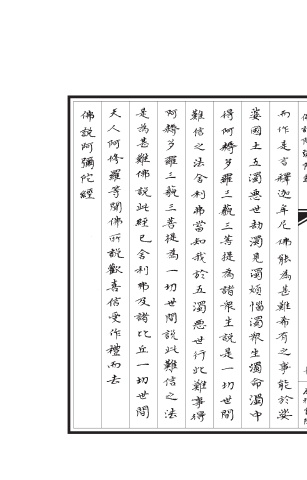 而作是言釋迦牟尼佛能為甚難希有之事能於娑
婆國土五濁惡世劫濁見濁煩惱濁眾生濁命濁中
得阿耨多羅三藐三菩提為諸眾生說是一切世間
難信之法舍利弗當知我於五濁惡世行此難事得
阿耨多羅三藐三菩提為一切世間說此難信之法
是為甚難佛說此經已舍利弗及諸比丘一切世間
天人阿修羅等聞佛所說歡喜信受作禮而去
佛說阿彌陀經